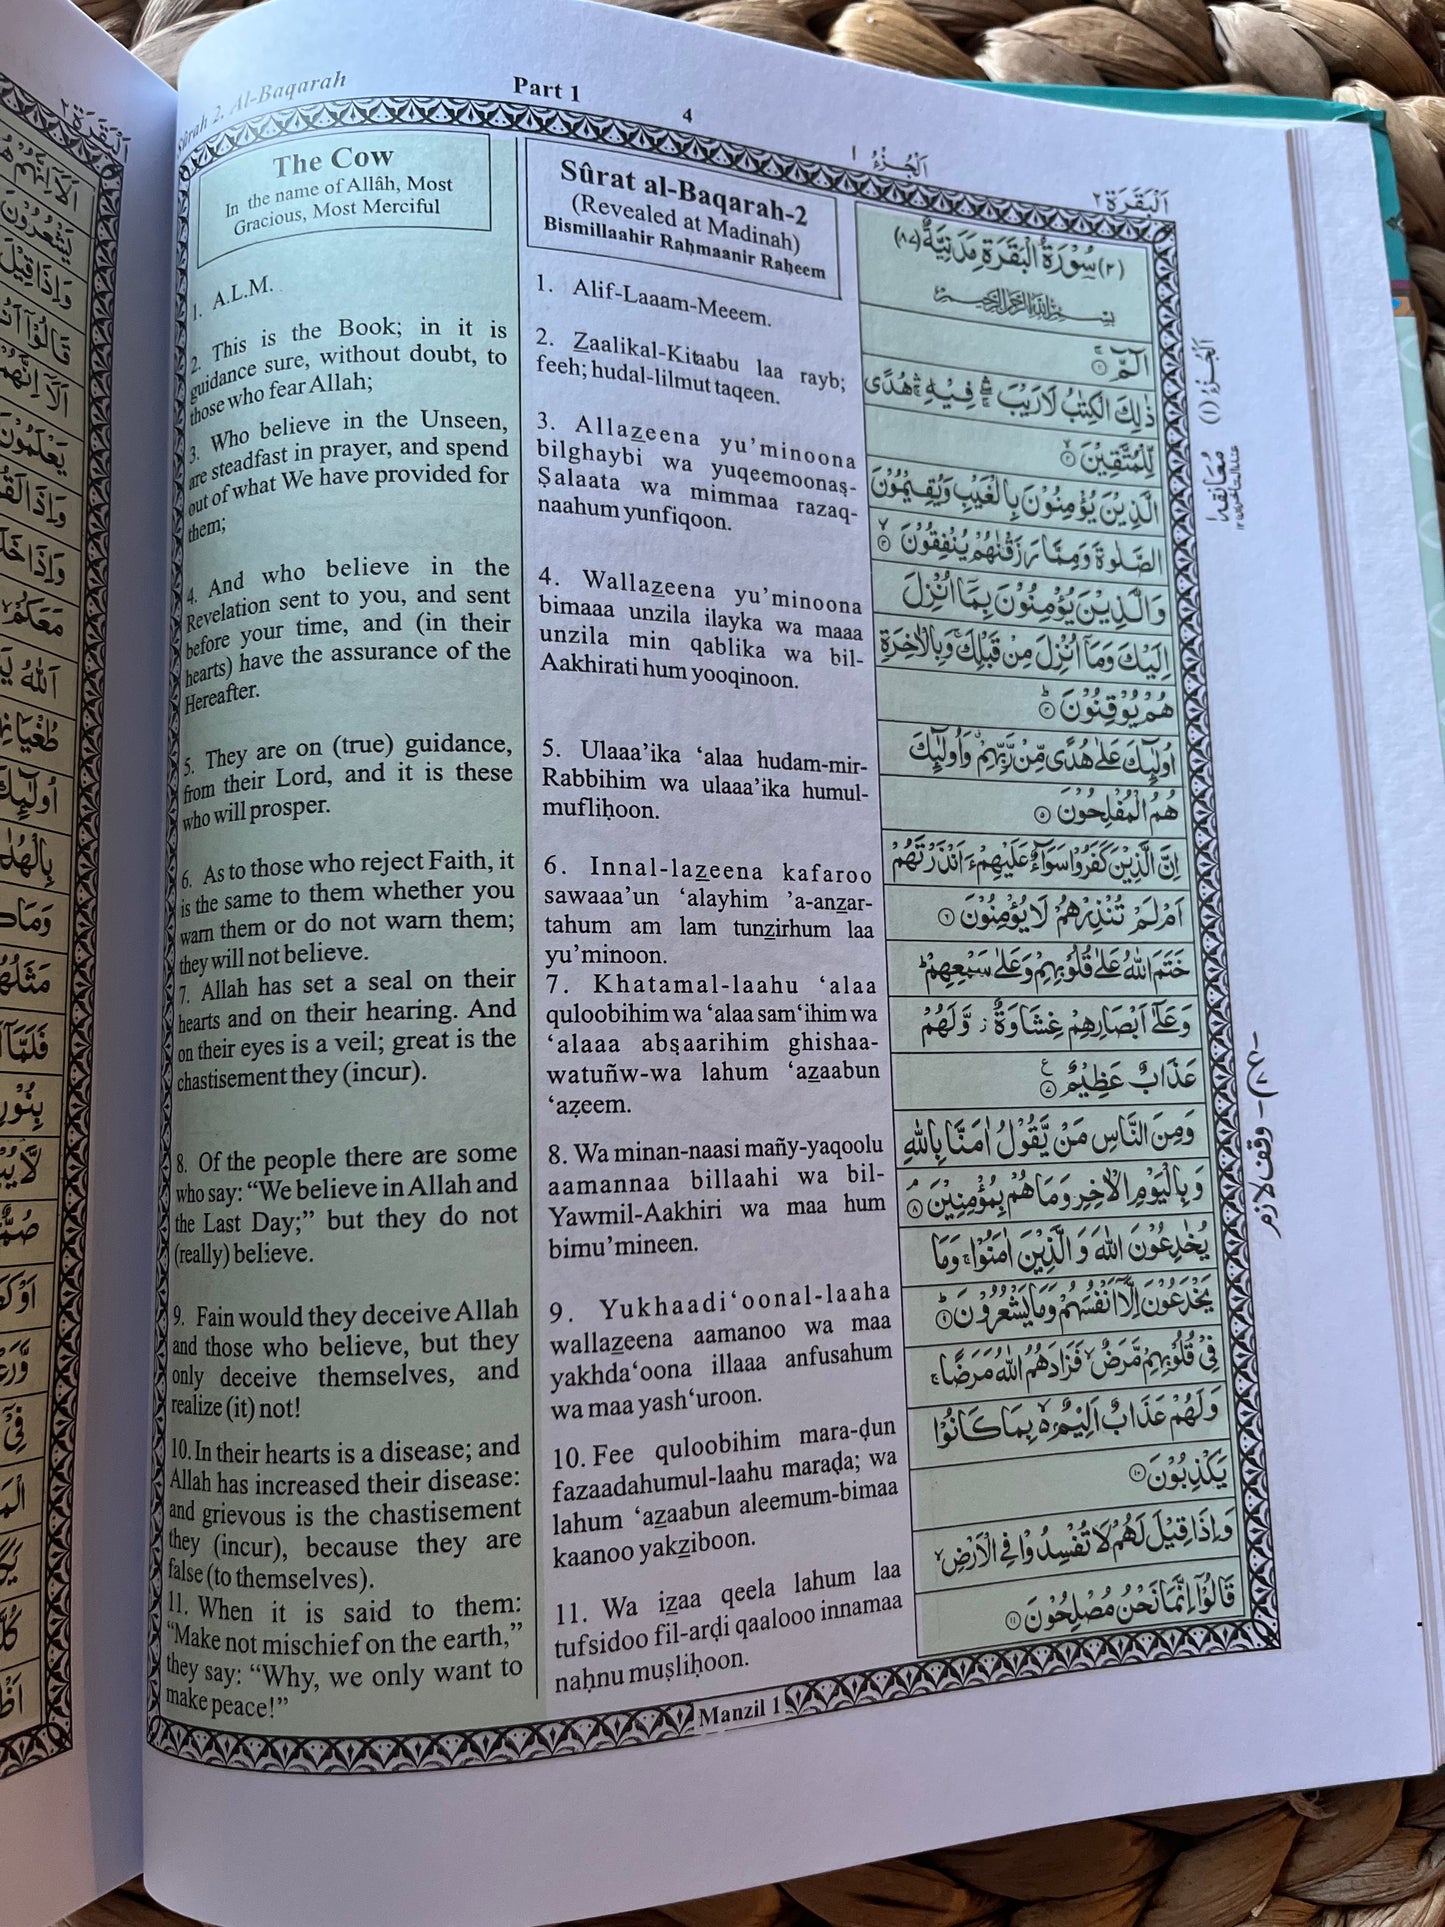 Sûrah 2. Al-Baqarah
Part 1
4
اَلْجُزْءُ ١
اَلْبَقَرَة ٢
The Cow
In the name of Allâh, Most
Gracious, Most Merciful
1. A.L.M.
2. This is the Book; in it is
guidance sure, without doubt, to
those who fear Allah;
3. Who believe in the Unseen,
are steadfast in prayer, and spend
out of what We have provided for
them;
4. And who believe in the
Revelation sent to you, and sent
before your time, and (in their
hearts) have the assurance of the
Hereafter.
5. They are on (true) guidance,
from their Lord, and it is these
who will prosper.
6. As to those who reject Faith, it
is the same to them whether you
warn them or do not warn them;
they will not believe.
7. Allah has set a seal on their
hearts and on their hearing. And
on their eyes is a veil; great is the
chastisement they (incur).
8. Of the people there are some
who say: “We believe in Allah and
the Last Day;” but they do not
(really) believe.
9. Fain would they deceive Allah
and those who believe, but they
only deceive themselves, and
realize (it) not!
10. In their hearts is a disease; and
Allah has increased their disease:
and grievous is the chastisement
they (incur), because they are
false (to themselves).
11. When it is said to them:
“Make not mischief on the earth,”
they say: “Why, we only want to
make peace!”
Sûrat al-Baqarah-2
(Revealed at Madinah)
Bismillaahir Raḥmaanir Raḥeem
1. Alif-Laaam-Meeem.
2. Zaalikal-Kitaabu laa rayb;
feeh; hudal-lilmut taqeen.
3. Allazeena yu’minoona
bilghaybi wa yuqeemoonaṣ-
Ṣalaata wa mimmaa razaq-
naahum yunfiqoon.
4. Wallazeena yu’minoona
bimaaa unzila ilayka wa maaa
unzila min qablika wa bil-
Aakhirati hum yooqinoon.
5. Ulaaa’ika ‘alaa hudam-mir-
Rabbihim wa ulaaa’ika humul-
mufliḥoon.
6. Innal-lazeena kafaroo
sawaaa’un ‘alayhim ’a-anzar-
tahum am lam tunzirhum laa
yu’minoon.
7. Khatamal-laahu ‘alaa
quloobihim wa ‘alaa sam‘ihim wa
‘alaaa abṣaarihim ghishaa-
watuñw-wa lahum ‘azaabun
‘aẓeem.
8. Wa minan-naasi mañy-yaqoolu
aamannaa billaahi wa bil-
Yawmil-Aakhiri wa maa hum
bimu’mineen.
9. Yukhaadi‘oonal-laaha
wallazeena aamanoo wa maa
yakhda‘oona illaaa anfusahum
wa maa yash‘uroon.
10. Fee quloobihim mara-ḍun
fazaadahumul-laahu maraḍa; wa
lahum ‘azaabun aleemum-bimaa
kaanoo yakziboon.
11. Wa izaa qeela lahum laa
tufsidoo fil-arḍi qaalooo innamaa
naḥnu muṣliḥoon.
(٢) سُوْرَةُ الْبَقَرَةِ مَدَنِيَّةٌ (٨٧)
بِسْمِ اللهِ الرَّحْمٰنِ الرَّحِيْمِ
الٓمّٓ ۚ ١
ذٰلِكَ الْكِتٰبُ لَا رَيْبَ ۛ فِيْهِ ۛ هُدًى
لِّلْمُتَّقِيْنَ ۙ ٢
الَّذِيْنَ يُؤْمِنُوْنَ بِالْغَيْبِ وَيُقِيْمُوْنَ
الصَّلٰوةَ وَمِمَّا رَزَقْنٰهُمْ يُنْفِقُوْنَ ۙ ٣
وَالَّذِيْنَ يُؤْمِنُوْنَ بِمَآ اُنْزِلَ
اِلَيْكَ وَمَآ اُنْزِلَ مِنْ قَبْلِكَ ۚ وَبِالْاٰخِرَةِ
هُمْ يُوْقِنُوْنَ ؕ ٤
اُولٰٓئِكَ عَلٰى هُدًى مِّنْ رَّبِّهِمْ ۗ وَاُولٰٓئِكَ
هُمُ الْمُفْلِحُوْنَ ٥
اِنَّ الَّذِيْنَ كَفَرُوْا سَوَآءٌ عَلَيْهِمْ ءَاَنْذَرْتَهُمْ
اَمْ لَمْ تُنْذِرْهُمْ لَا يُؤْمِنُوْنَ ٦
خَتَمَ اللهُ عَلٰى قُلُوْبِهِمْ وَعَلٰى سَمْعِهِمْ ؕ
وَعَلٰٓى اَبْصَارِهِمْ غِشَاوَةٌ ز وَّلَهُمْ
عَذَابٌ عَظِيْمٌ ع ٧
وَمِنَ النَّاسِ مَنْ يَّقُوْلُ اٰمَنَّا بِاللهِ
وَبِالْيَوْمِ الْاٰخِرِ وَمَا هُمْ بِمُؤْمِنِيْنَ ۘ ٨
يُخٰدِعُوْنَ اللهَ وَالَّذِيْنَ اٰمَنُوْا ۚ وَمَا
يَخْدَعُوْنَ اِلَّآ اَنْفُسَهُمْ وَمَا يَشْعُرُوْنَ ؕ ٩
فِيْ قُلُوْبِهِمْ مَّرَضٌ ۙ فَزَادَهُمُ اللهُ مَرَضًا ۚ
وَلَهُمْ عَذَابٌ اَلِيْمٌ ۢ ۙ بِمَا كَانُوْا
يَكْذِبُوْنَ ١٠
وَاِذَا قِيْلَ لَهُمْ لَا تُفْسِدُوْا فِي الْاَرْضِ ۙ
قَالُوْٓا اِنَّمَا نَحْنُ مُصْلِحُوْنَ ١١
اَلْجُزْءُ (١)
معانقة ١
وقف لازم
Manzil 1